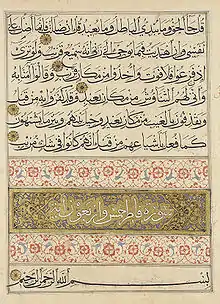 قل جاء الحق وما يبدئ الباطل وما يعيد قل ان ضللت فانما اضل على
نفسي وان اهتديت فبما يوحي الي ربي انه سميع قريب ولو ترى
اذ فزعوا فلا فوت واخذوا من مكان قريب وقالوا آمنا به
وانى لهم التناوش من مكان بعيد وقد كفروا به من قبل
ويقذفون بالغيب من مكان بعيد وحيل بينهم وبين ما يشتهون
كما فعل باشياعهم من قبل انهم كانوا في شك مريب
سورة فاطر خمس واربعون
بسم الله الرحمن الرحيم